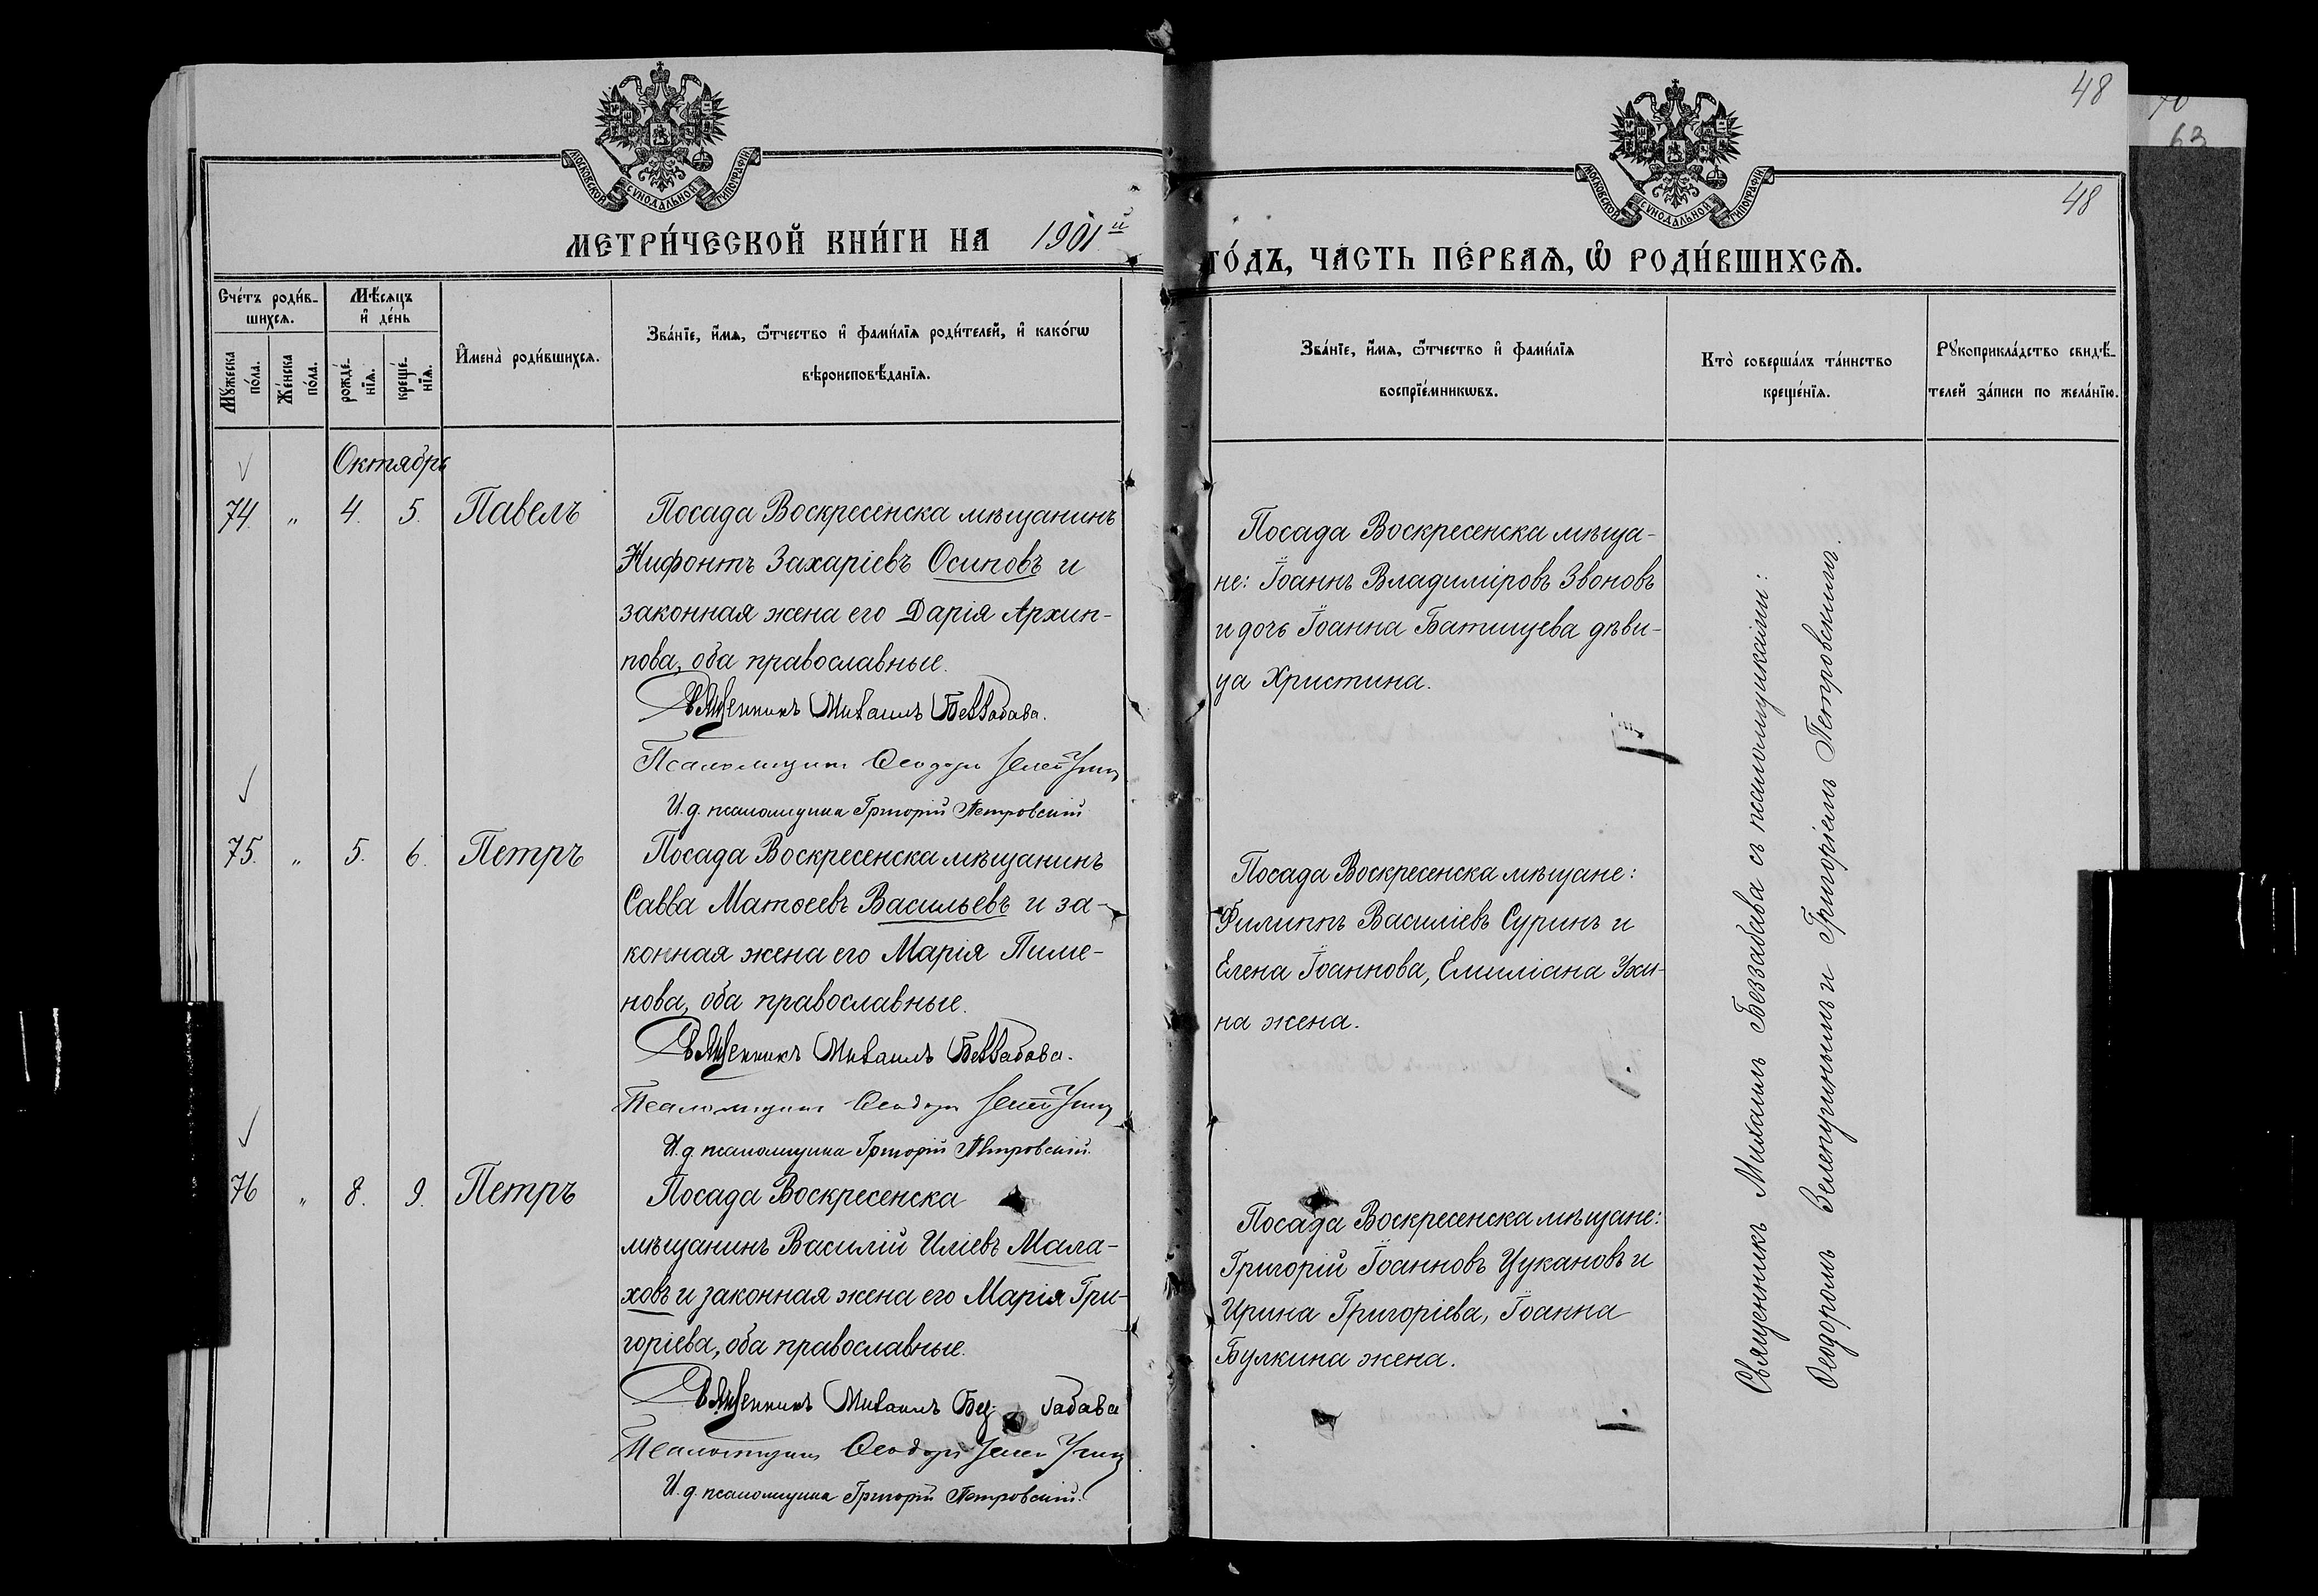 48
70
63
48
МОСКОВСКОЙ СѴНОДАЛЬНОЙ ТИПОГРАФІИ
МОСКОВСКОЙ СѴНОДАЛЬНОЙ ТИПОГРАФІИ
МЕТРИ́ЧЕСКОЙ КНИ́ГИ НА 1901й
ГО́ДЪ, ЧА́СТЬ ПЕ́РВАѦ, Ѡ҆ РОДИ́ВШИХСѦ.
Сче́тъ роди́в-
шихсѧ.
Мꙋ́жеска
по́ла.
Же́нска
по́ла.
Мѣ́сѧцъ
и҆ де́нь
рожде́-
нїѧ.
креще́-
нїѧ.
И҆мена̀ роди́вшихсѧ.
Зва́нїе, и҆́мѧ, ѻ҆́тчество и҆ фами́лїѧ роди́телей, и҆ како́гѡ
вѣроисповѣ́данїѧ.
Зва́нїе, и҆́мѧ, ѻ҆́тчество и҆ фами́лїѧ
воспрїе́мникѡвъ.
Кто̀ соверша́лъ та́инство
креще́нїѧ.
Рꙋкоприкла́дство свидѣ́-
телей за́писи по жела́нїю.
Октябрь
74. " 4. 5. Павелъ
Посада Воскресенска мѣщанинъ
Нифонтъ Захаріевъ Осиповъ и
законная жена его Дарія Архип-
пова, оба православные.
Священникъ Михаилъ Беззабава.
Псаломщикъ Ѳеодоръ
И. д. псаломщика Григорій Петровскій
Посада Воскресенска мѣща-
не: Іоаннъ Владиміровъ Звоновъ
и дочь Іоанна Батищева дѣви-
ца Христина.
75. " 5. 6. Петръ
Посада Воскресенска мѣщанинъ
Савва Матѳеевъ Васильевъ и за-
конная жена его Марія Пиме-
нова, оба православные.
Священникъ Михаилъ Беззабава.
Псаломщикъ Ѳеодоръ
И. д. псаломщика Григорій Петровскій.
Посада Воскресенска мѣщане:
Филиппъ Василіевъ Суринъ и
Елена Іоаннова, Емиліана
на жена.
76 " 8. 9. Петръ
Посада Воскресенска
мѣщанинъ Василій Иліевъ Мала-
ховъ и законная жена его Марія Гри-
горіева, оба православные.
Священникъ Михаилъ Беззабава
Псаломщикъ Ѳеодоръ
И. д. псаломщика Григорій Петровскій.
Посада Воскресенска мѣщане:
Григорій Іоанновъ Цукановъ и
Ирина Григоріева, Іоанна
Булкина жена.
Священникъ Михаилъ Беззабава съ псаломщиками:
Ѳеодоромъ и Григоріемъ Петровскимъ.